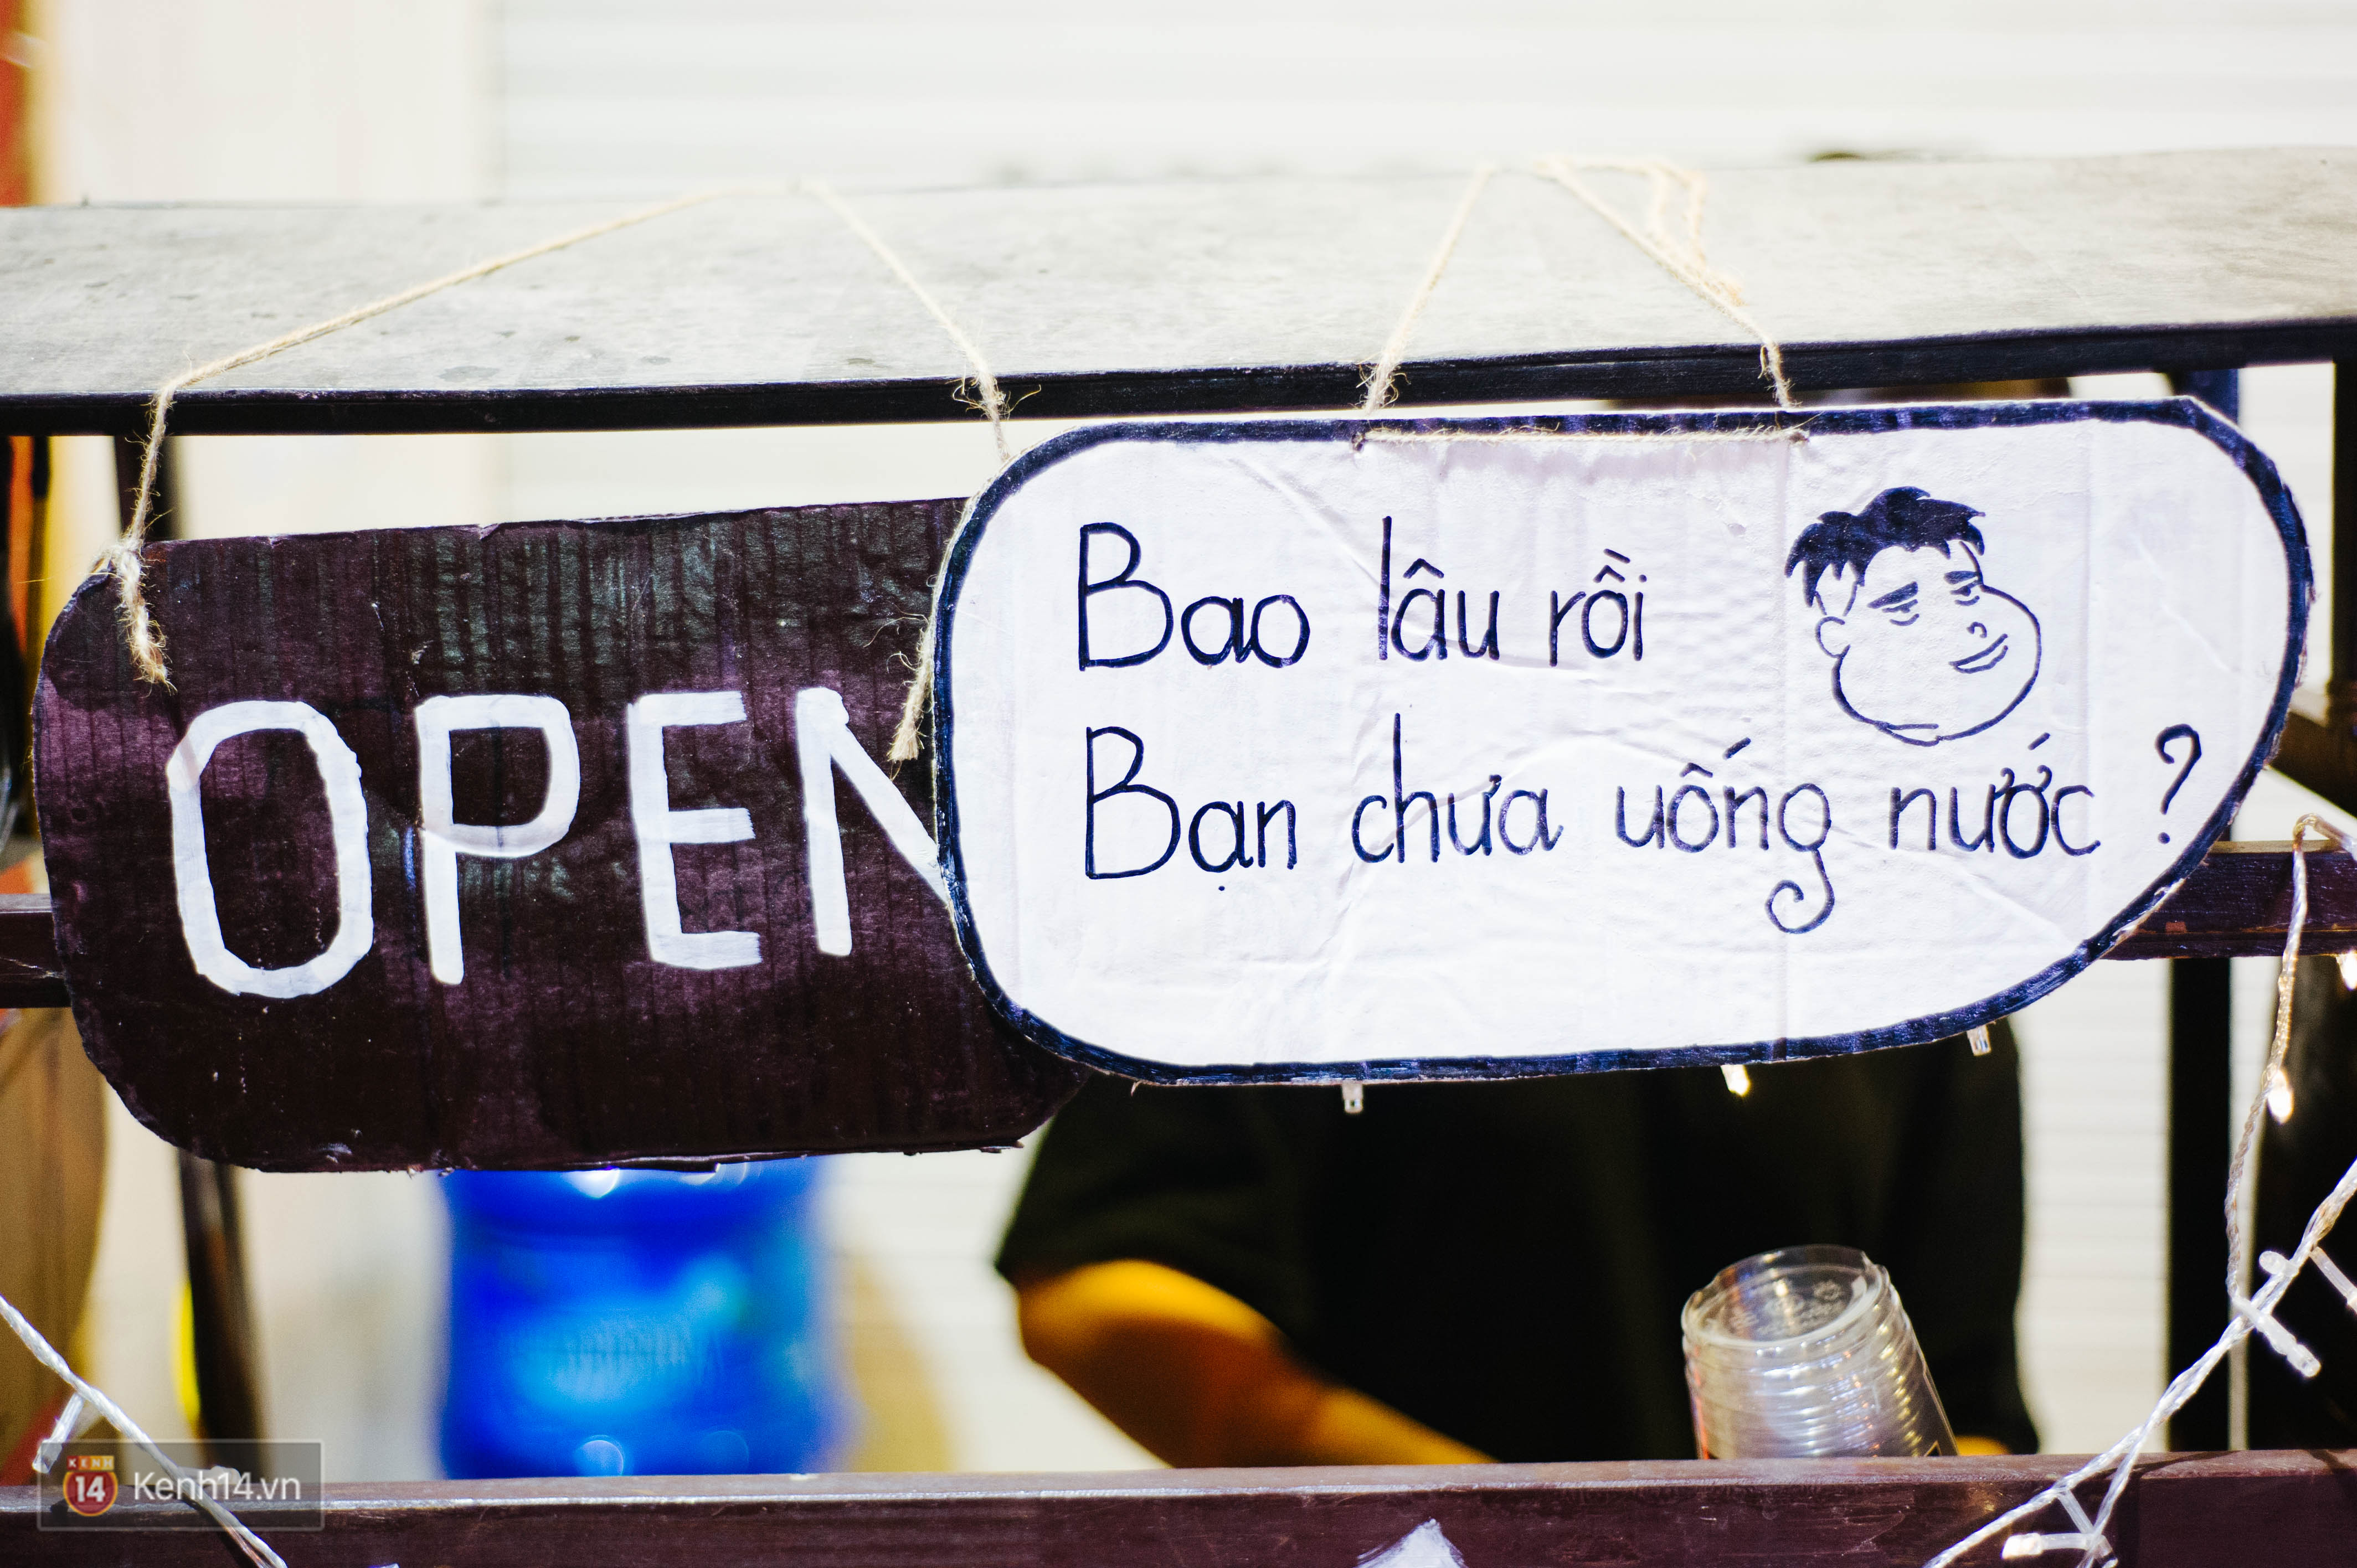 OPEN
Bao lâu rồi
Bạn chưa uống nước ?
KENH
14
Kenh14.vn